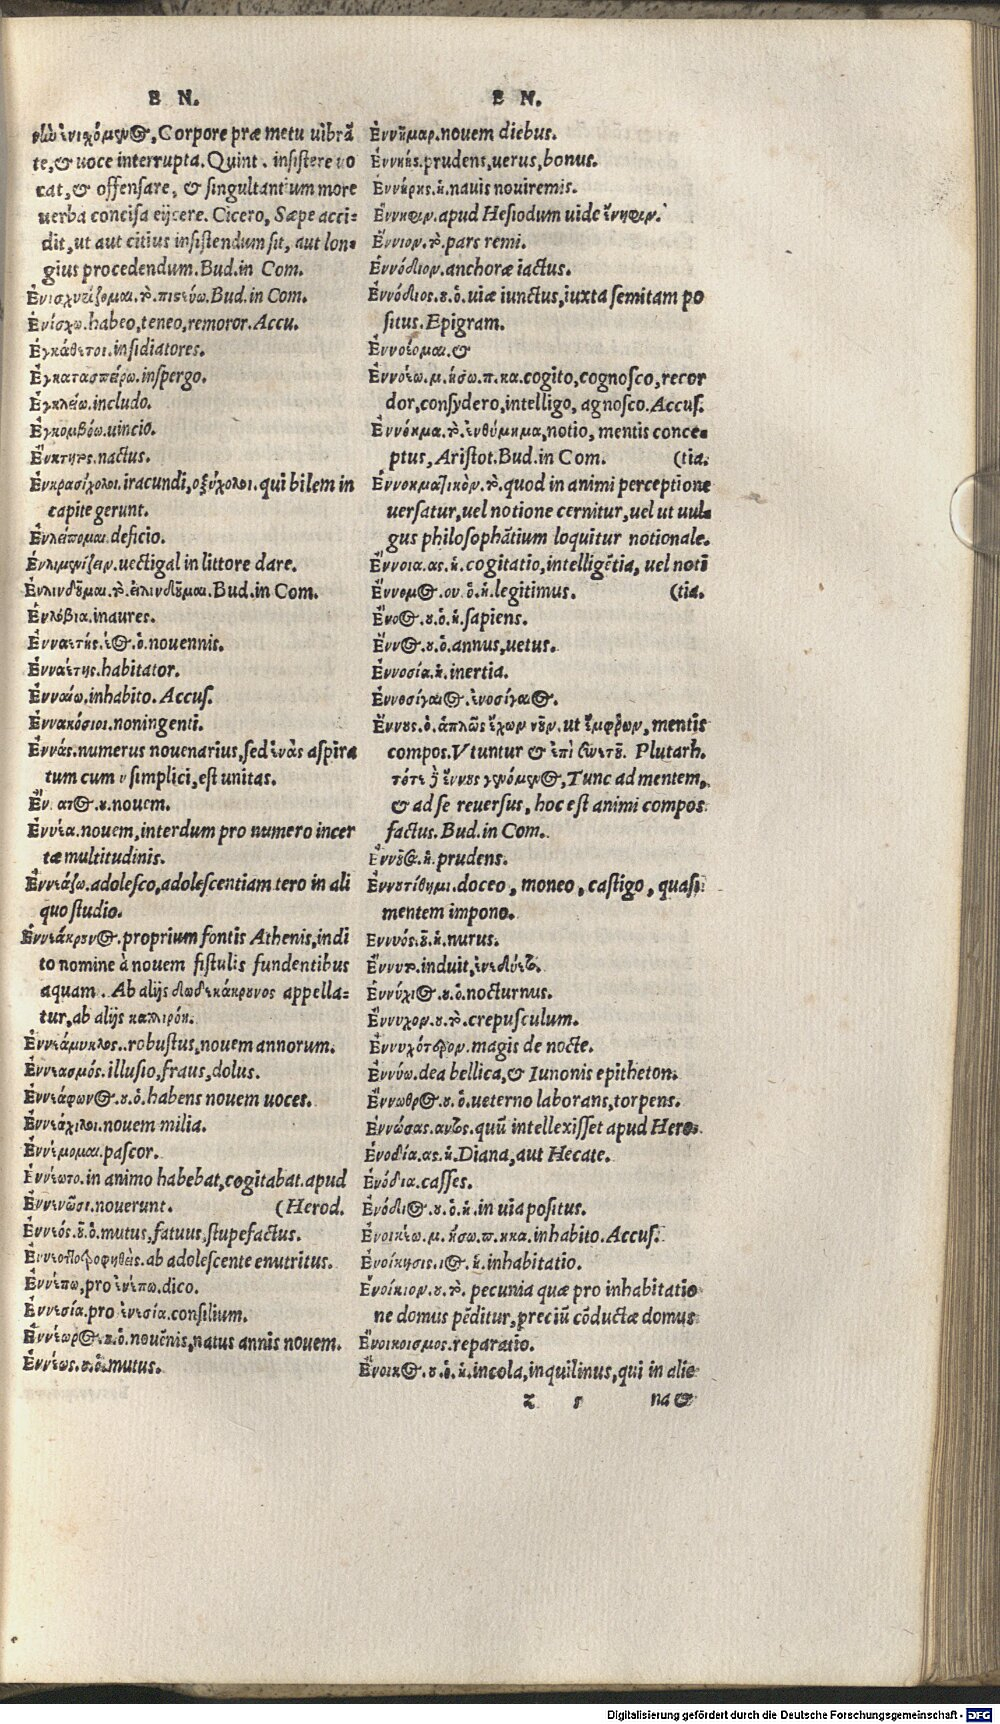 E N.
νὼ ἐνιχόμενος, Corpore præ metu uibrā
te, & uoce interrupta. Quint. insistere uo
cat, & offensare, & singultantium more
uerba concisa eijcere. Cicero, Sæpe acci-
dit, ut aut citius insistendum sit, aut lon-
gius procedendum. Bud. in Com.
Ἐνισχυρίζομαι. τὸ. πιστεύω. Bud. in Com.
Ἐνίσχω. habeo, teneo, remoror. Accu.
Ἐγκάθετοι. insidiatores.
Ἐγκατασπείρω. inspergo.
Ἐγκλείω. includo.
Ἐγκομβόω. uincio.
nactus.
Ἐνκρασίχολοι. iracundi, οξύχολοι. qui bilem in
capite gerunt.
Ἐνλείπομαι. deficio.
Ἐνλιμενίζειν. uectigal in littore dare.
Ἐνλινδοῦμαι. τὸ. ἐιλινδοῦμαι. Bud. in Com.
Ἐνλόβια. inaures.
Ἐνναετής. έος. ὁ. nouennis.
Ἐνναέτης. habitator.
Ἐνναίω. inhabito. Accus.
Ἐννακόσιοι. noningenti.
Ἐννάς. numerus nouenarius, sed ἑνὰς aspira
tum cum ν simplici, est unitas.
Ἔν ατος. ου. nouem.
Ἐννέα. nouem, interdum pro numero incer
tæ multitudinis.
Ἐννεάζω. adolesco, adolescentiam tero in ali
quo studio.
Ἐννεάκρουνος. proprium fontis Athenis, indi
to nomine à nouem fistulis fundentibus
aquam. Ab alijs δωδεκάκρουνος appella-
tur, ab alijs καλιρόη.
Ἐννεάμυκλος.. robustus, nouem annorum.
Ἐννεασμός. illusio, fraus, dolus.
Ἐννεάφωνος. ου. ὁ. habens nouem uoces.
Ἐννεάχιλοι. nouem milia.
Ἐννέμομαι. pascor.
Ἐννέωτο. in animo habebat, cogitabat. apud
Ἐννενῶσι. nouerunt. (Herod.
Ἐννεός. οῦ. ὁ. mutus, fatuus, stupefactus.
ab adolescente enutritus.
Ἐννέπω, pro ἐνέπω. dico.
Ἐννεσία. pro ἐνεσία. consilium.
Ἐννέωρος. ου. ὁ. nouēnis, natus annis nouem.
Ἐννέως. ου. ὁ. mutus.
E N.
Ἐννῆμαρ. nouem diebus.
Ἐννηής. prudens, uerus, bonus.
Ἐννήρης. ἡ. nauis nouiremis.
Ἔννηφιν. apud Hesiodum uide ἔνηφιν.
Ἔννιον. τὸ. pars remi.
Ἐννόδιον. anchoræ iactus.
Ἐννόδιος. ου. ὁ. uiæ iunctus, iuxta semitam po
situs. Epigram.
Ἐννοέομαι. &
Ἐννοέω. μ. ήσω. π. κα. cogito, cognosco, recor
dor, consydero, intelligo, agnosco. Accus.
Ἐννόημα. τὸ. ἐνθύμημα, notio, mentis conce-
ptus, Aristot. Bud. in Com. (tia.
Ἐννοηματικὸν. τὸ. quod in animi perceptione
uersatur, uel notione cernitur, uel ut uul-
gus philosophātium loquitur notionale.
Ἔννοια. ας. ἡ. cogitatio, intelligētia, uel noti
Ἔννομος. ου. ὁ. ἡ. legitimus. (tia.
Ἔνοος. ου. ὁ. ἡ. sapiens.
Ἔννος. ου. ὁ. annus, uetus.
Ἐννοσία. ἡ. inertia.
Ἐννοσίγαιος. ἐνοσίγαιος.
Ἔννους. ὁ. ἁπλῶς ἔχων νοῦν. ut ἔμφρων, mentis
compos. Vtuntur & ἐπὶ συνετοῦ. Plutarh.
τότε δὲ ἔννους γενόμενος, Tunc ad mentem,
& ad se reuersus, hoc est animi compos
factus. Bud. in Com.
prudens.
Ἐννουτίθημι. doceo, moneo, castigo, quasi
mentem impono.
Ἐννυός. οῦ. ἡ. nurus.
Ἔννυτο. induit, ἐνεδύετο.
Ἐννύχιος. ου. ὁ. nocturnus.
Ἔννυχον. ου. τὸ. crepusculum.
Ἐννυχότερον. magis de nocte.
Ἐννύω. dea bellica, & Iunonis epitheton.
Ἔννωθρος. ου. ὁ. ueterno laborans, torpens.
Ἐννώσας. αντος. quū intellexisset apud Hero.
Ἐνοδία. ας. ἡ. Diana, aut Hecate.
Ἐνόδια. casses.
Ἐνόδιος. ου. ὁ. ἡ. in uia positus.
Ἐνοικέω. μ. ήσω. π. ηκα. inhabito. Accus.
Ἐνοίκησις. ιος. ἡ. inhabitatio.
Ἐνοίκιον. ου. τὸ. pecunia quæ pro inhabitatio
ne domus pēditur, preciū cōductæ domus
Ἐνοικοισμος. reparatio.
Ἔνοικος. ου. ὁ. ἡ. incola, inquilinus, qui in alie
z 5 na &
Digitalisierung gefördert durch die Deutsche Forschungsgemeinschaft - DFG